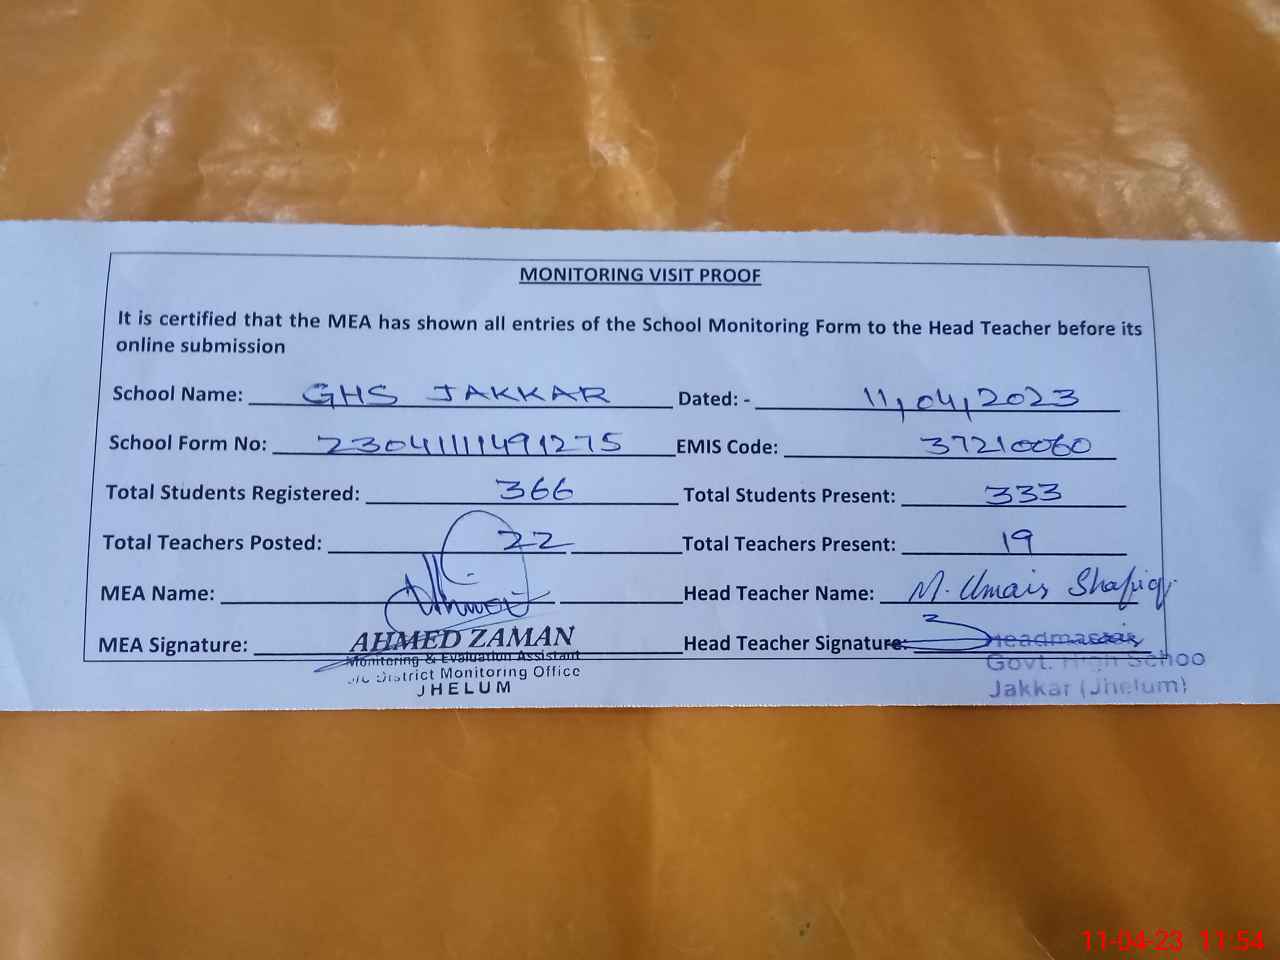 MONITORING VISIT PROOF
It is certified that the MEA has shown all entries of the School Monitoring Form to the Head Teacher before its
online submission
School Name: GHS JAKKAR Dated: - 11,04,2023
School Form No: 23041111491275 EMIS Code: 37210060
Total Students Registered: 366 Total Students Present: 333
Total Teachers Posted: 22 Total Teachers Present: 19
MEA Name: Head Teacher Name: M. Umais Shafiq
MEA Signature: AHMED ZAMAN Head Teacher Signature: Headmaster
Monitoring & Evaluation Assistant Govt. High Schoo
District Monitoring Office
JHELUM Jakkar (Jhelum)
11-04-23 11:54